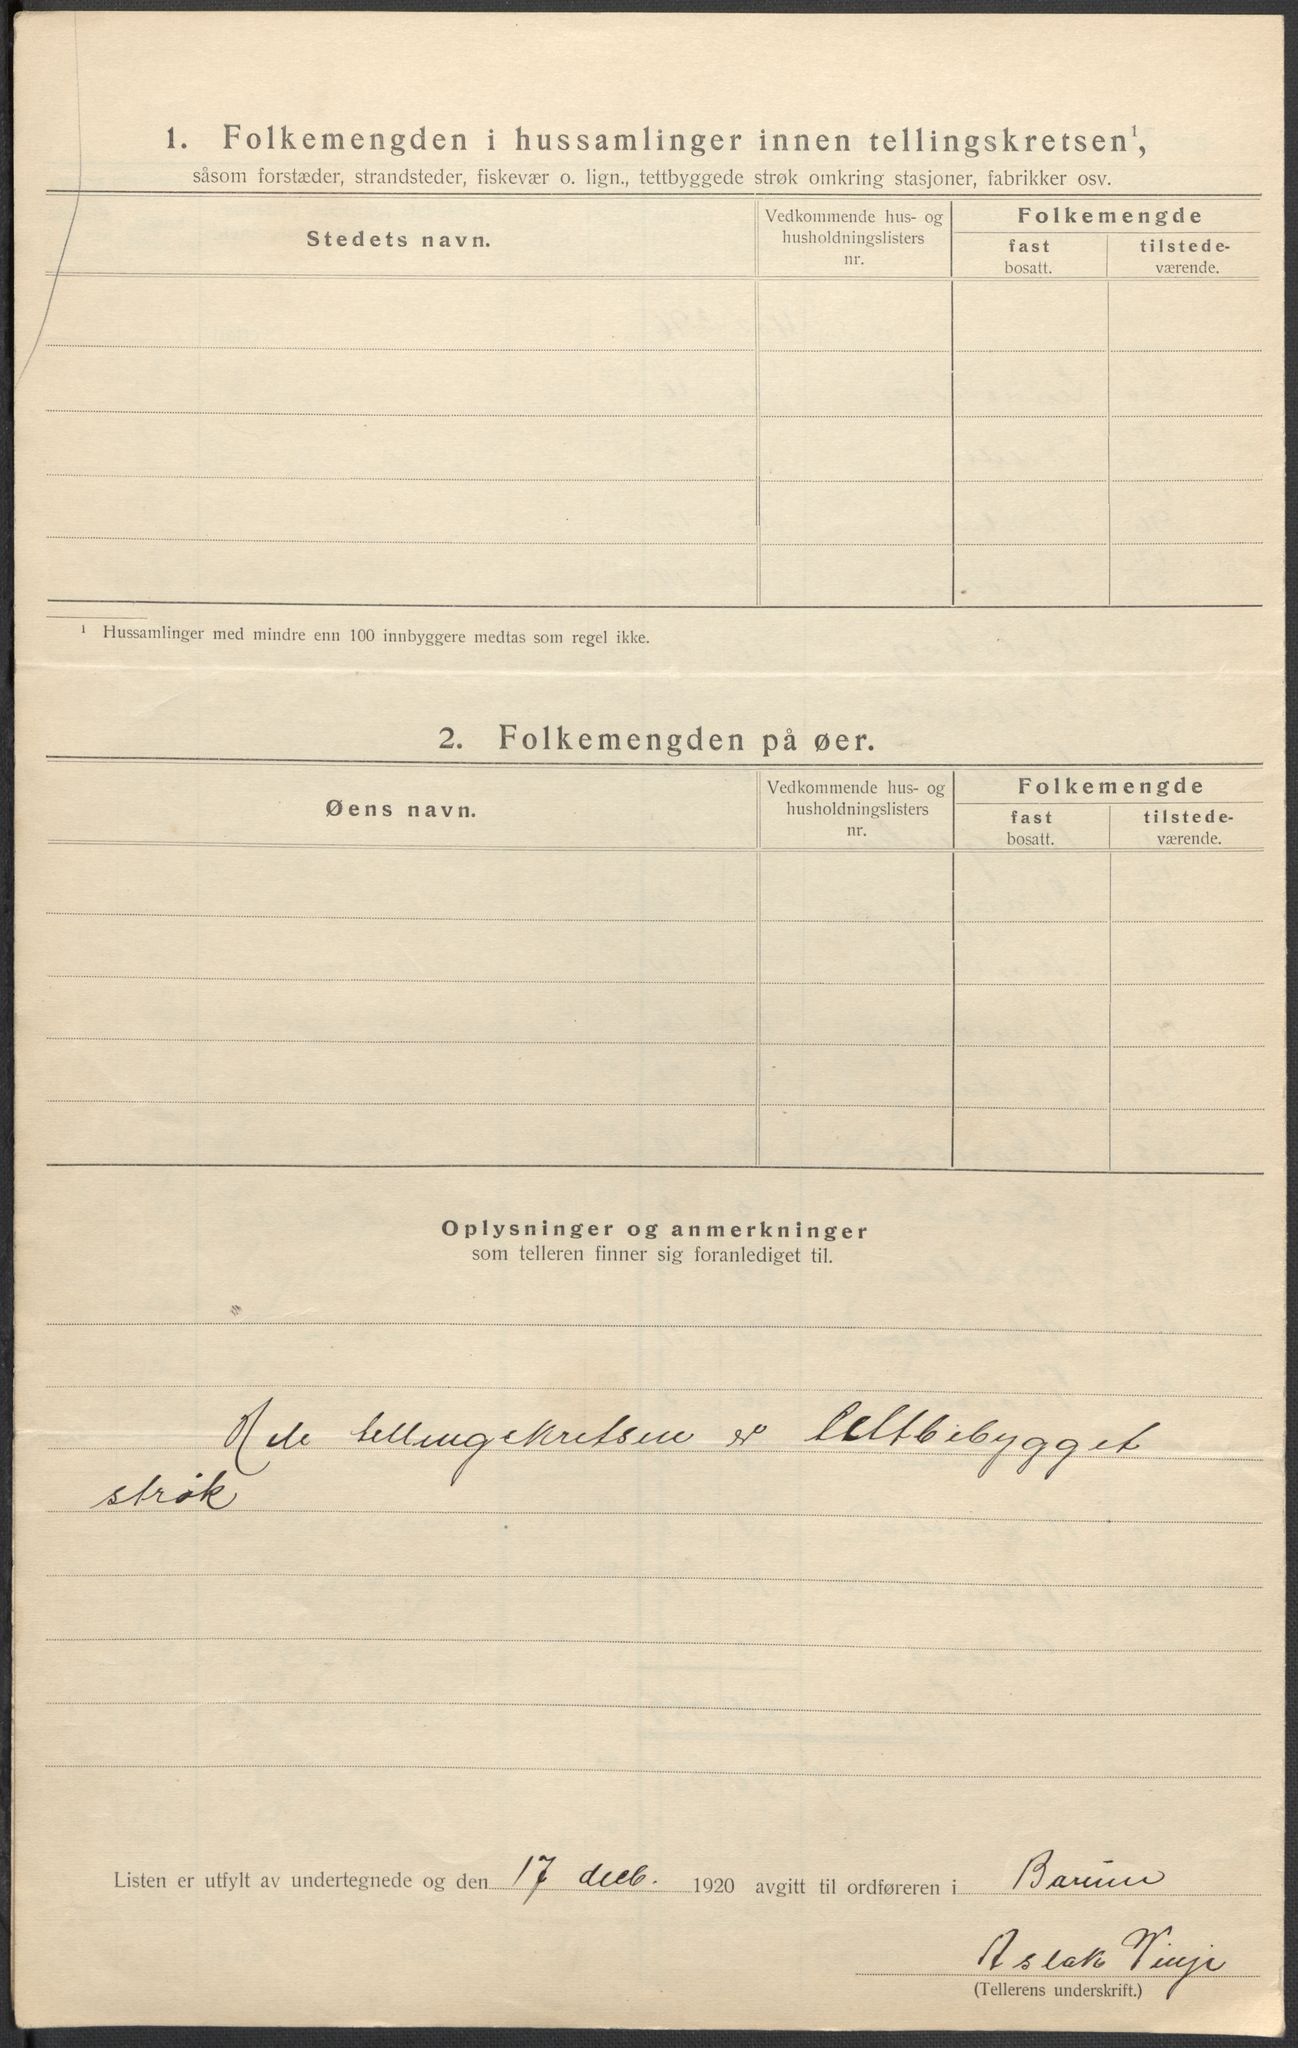 1. Folkemengden i hussamlinger innen tellingskretsen¹,
såsom forstæder, strandsteder, fiskevær o. lign., tettbyggede strøk omkring stasjoner, fabrikker osv.
Stedets navn.
Vedkommende hus- og
husholdningslisters
nr.
Folkemengde
fast
bosatt.
tilstede-
værende.
¹ Hussamlinger med mindre enn 100 innbyggere medtas som regel ikke.
2. Folkemengden på øer.
Øens navn.
Vedkommende hus- og
husholdningslisters
nr.
Folkemengde
fast
bosatt.
tilstede-
værende.
Oplysninger og anmerkninger
som telleren finner sig foranlediget til.
Hele tellingskretsen er tettbebygget
strøk
Listen er utfylt av undertegnede og den 17 decb. 1920 avgitt til ordføreren i Bærum
Aslak Vinje
(Tellerens underskrift.)